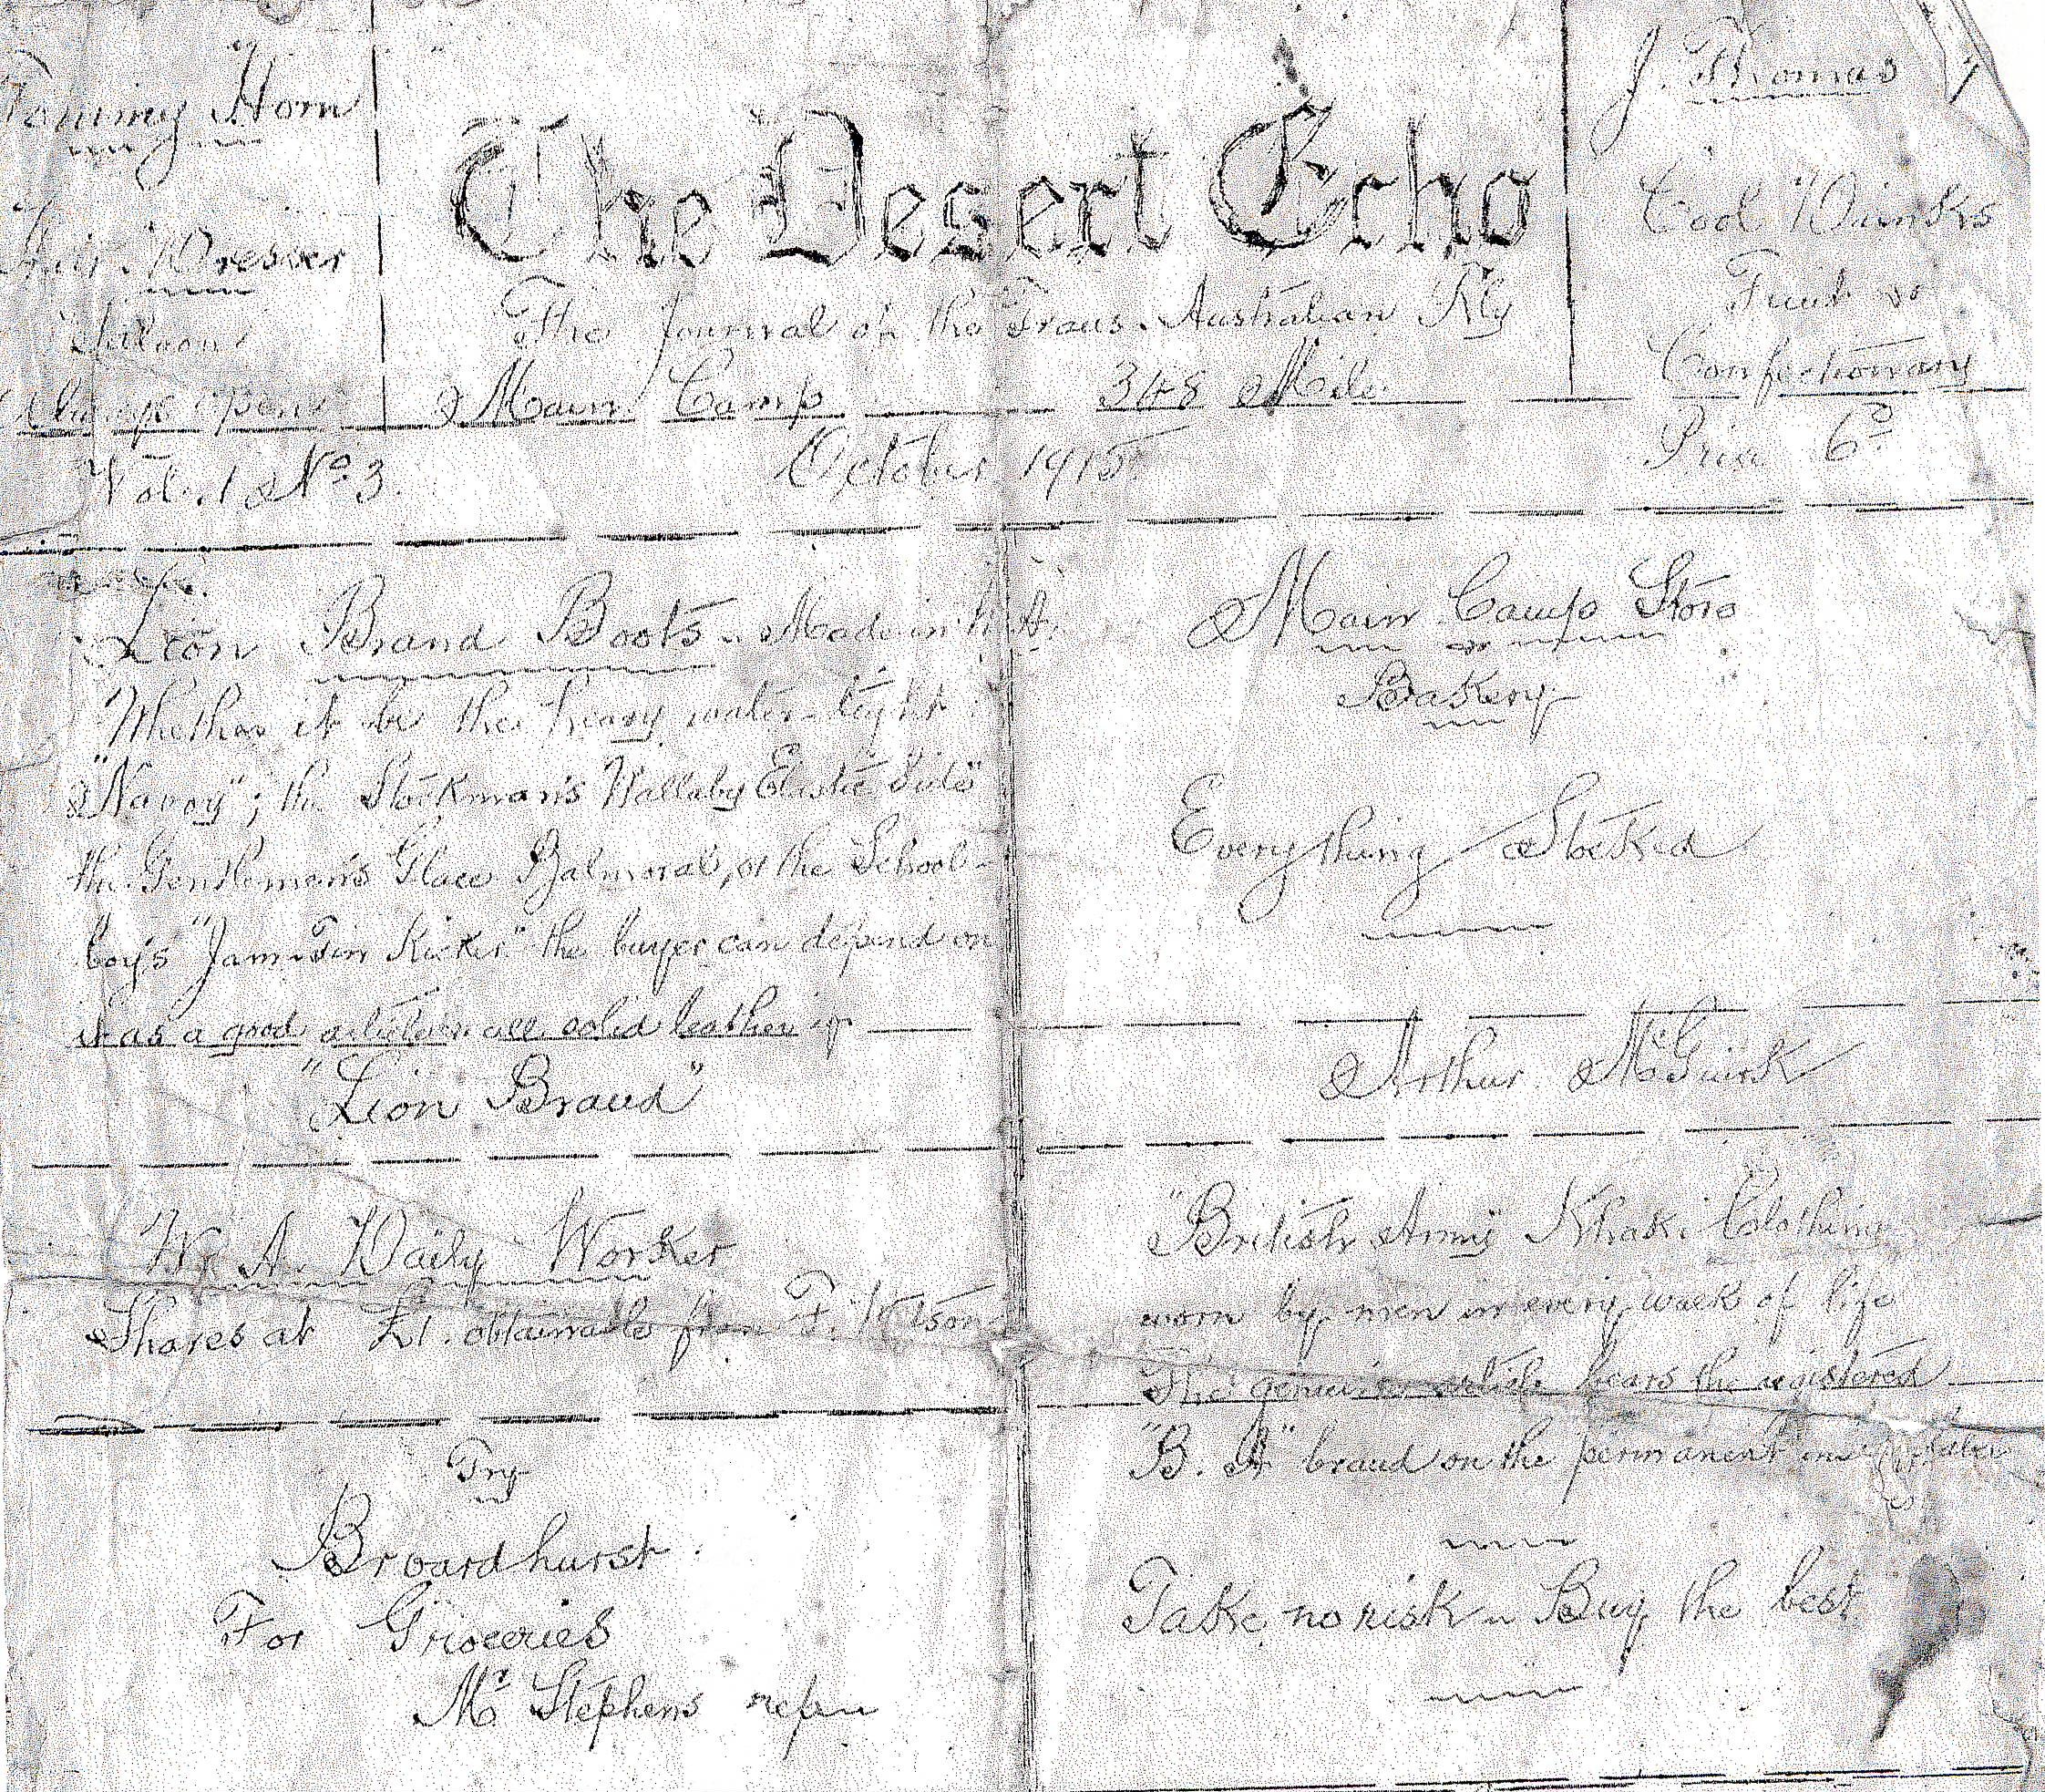 Tommy Horn
Hair Dresser
Saloon
Always open
The Desert Echo
The Journal of the Trans. Australian Rly
Main Camp 348 Mile
J. Thomas
Cool Drinks
Fruit &
Confectionary
Vol. 1 No. 3.
October 1915
Price 6D
Lion Brand Boots - Made in W.A.
Whether it be the heavy water-tight
"Navvy"; the Stockman's Wallaby Elastic Side"
the Gentleman's Glace Balmoral, or the School-
boy's "Jam Tin Kicker" the buyer can depend on
it as a good article in all solid leather if
"Lion Brand"
Main Camp Store
&
Bakery
Everything Stocked
Arthur McGuirk
W. A. Daily Worker
Shares at £1. obtainable from F.
"British Army" Khaki Clothing
worn by men in every walk of life
The genuine article bears the registered
"B. A" brand on the permanent
Take no risk - Buy the best
Try
Broardhurst.
For Groceries
Mr Stephens repn